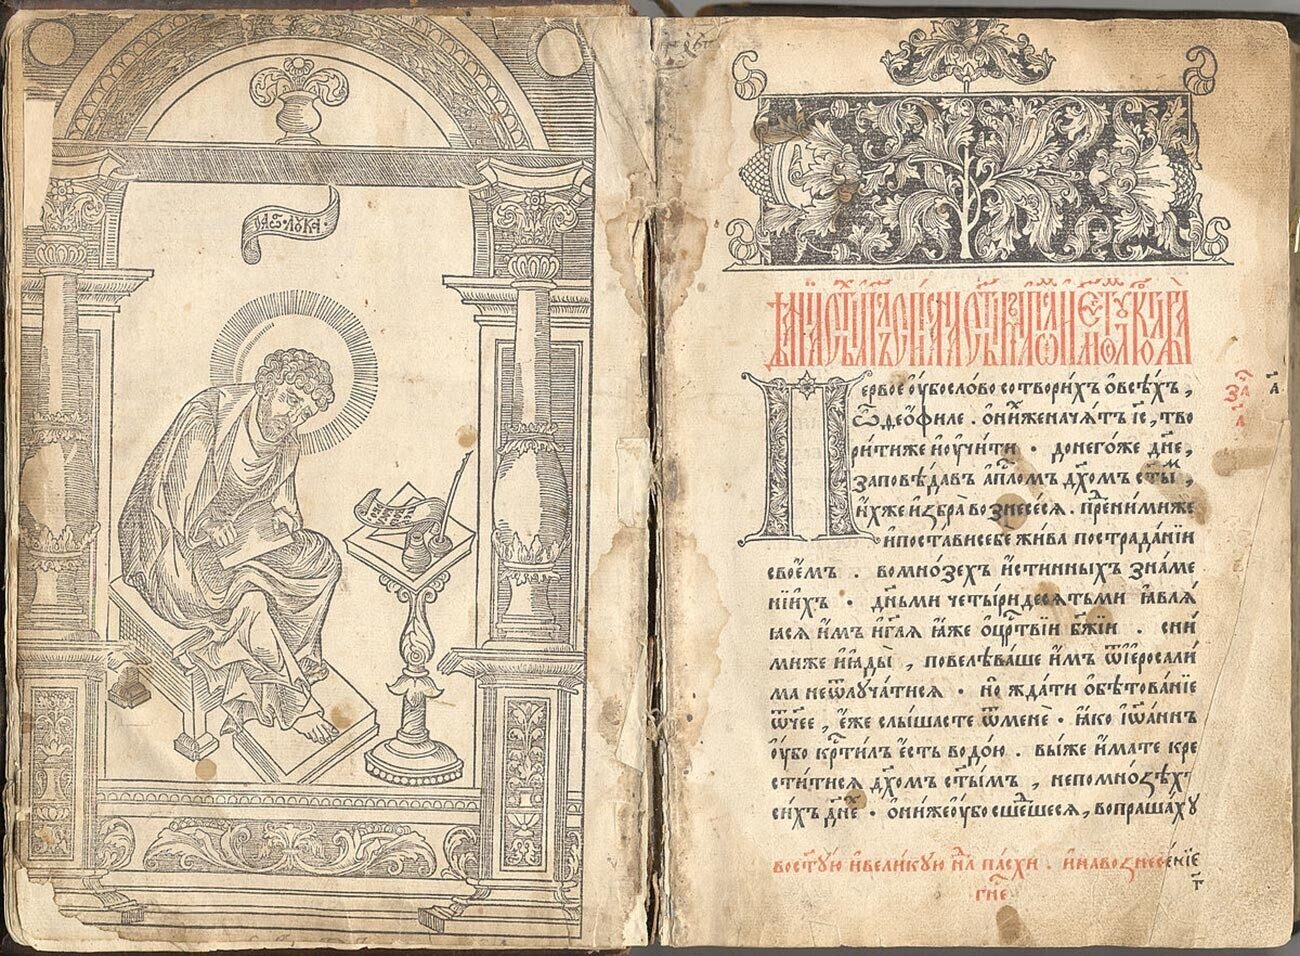 лꙋка
Первое ᲂу҆бо слово сотворихъ ѡ҆ всѣхъ,
ѽ, Ѳео́филе. ѡ҆ ни́хже начѧ́тъ і҆с҃, тво
ри́тиже и҆ ᲂу҆чи́ти · до него́же дн҃е,
заповѣ́давъ а҆пⷭ҇ломъ дх҃омъ ст҃ы́ⷨ,
и҆́хже и҆збра̀ вознесе́сѧ. пре́дⷩ҇и́миже
и҆ поста́ви себѐ жи́ва по страда́нїи
свое́мъ. во мно́зехъ и҆́стинныхъ зна́ме
нїихъ · дн҃ьми четы́ридесѧтьми ꙗ҆влѧ́
ѧсѧ и҆̀мъ и҆ гл҃ѧ ꙗ҆́же ѡ҆ црⷭ҇твїи бж҃їи. сни́
миже и҆ ꙗ҆ды̀, повелѣ́ваше и҆̀мъ ѿ і҆еросали́
ма не ѿлуча́тисѧ · но жда́ти ѡ҆бѣтова́нїе
ѻ҆́ч҃ее, є҆́же слы́шасте ѿ менѐ · ꙗ҆́ко і҆ѡ҃а́ннъ
ᲂу҆́бо крⷭ҇ти́лъ є҆́сть водо́ю. вы́же и҆́мате кре
сти́тисѧ дх҃омъ ст҃ы́мъ, не по мно́ѕѣхъ
си́хъ дн҃ехъ · ѻ҆ни́же ᲂу҆̀бо сше́дшесѧ, вопраша́хꙋ
во ст҃ꙋ́ю и҆ вели́кꙋю нⷣлю па́схи. и҆ на вознесе́нїе
гдⷭ҇не